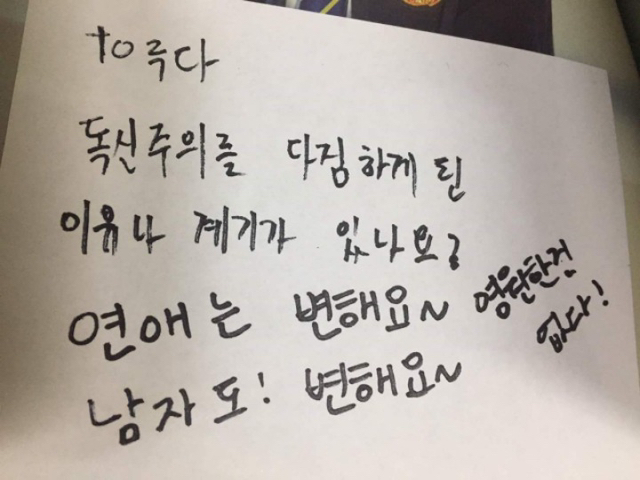 to 루다
독신주의를 다짐하게 된
이유나 계기가 있나요?
연애는 변해요~
남자도! 변해요~
영원한건
없다!